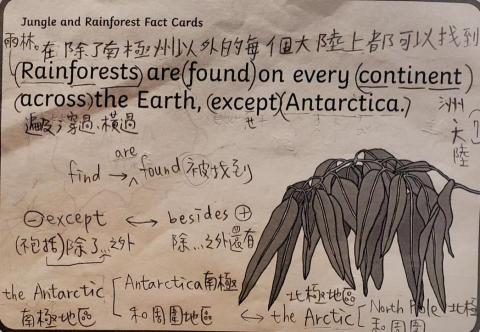 Jungle and Rainforest Fact Cards
雨林。在除了南極州以外的每個大陸上都可以找到
(Rainforests) are (found) on every (continent)
(across) the Earth, (except) (Antarctica.)
遍及; 穿過、橫過
洲
大陸
are
find → found 被找到
⊖ except ↔ besides ⊕
(包括) 除了...之外 除...之外還有
the Antarctic [ Antarctica 南極
南極地區 和周圍地區
北極地區
↔ the Arctic [ North Pole 北極
和周圍